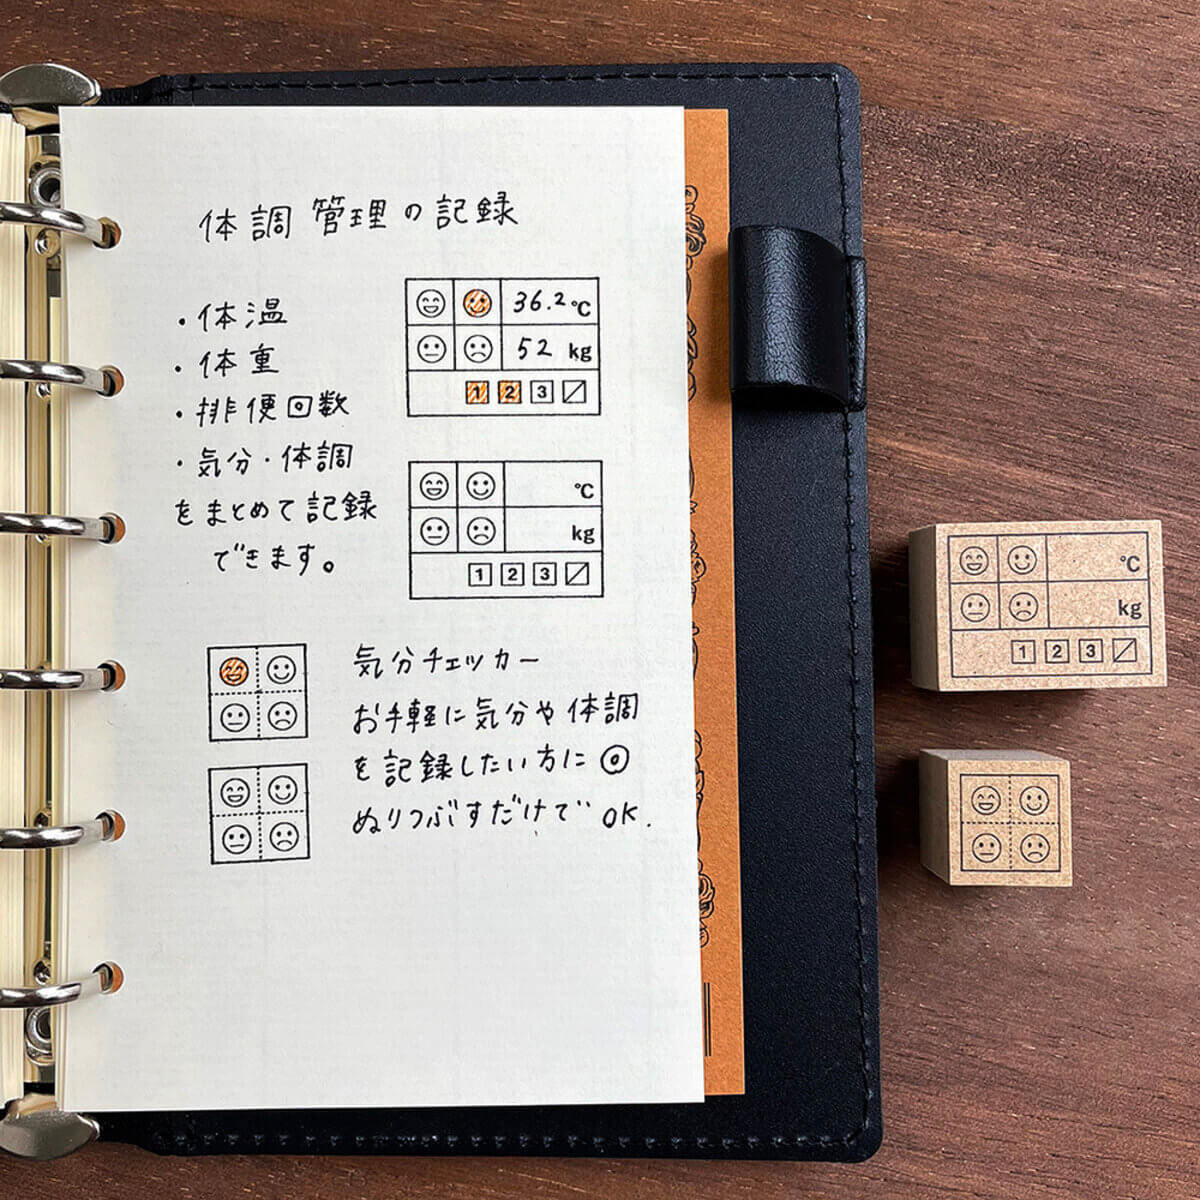 体調管理の記録
・体温
・体重
・排便回数
・気分・体調
をまとめて記録
できます。
36.2℃
52 kg
1 2 3
℃
kg
1 2 3
気分チェッカー
お手軽に気分や体調
を記録したい方に◎
ぬりつぶすだけで OK.
℃
kg
1 2 3